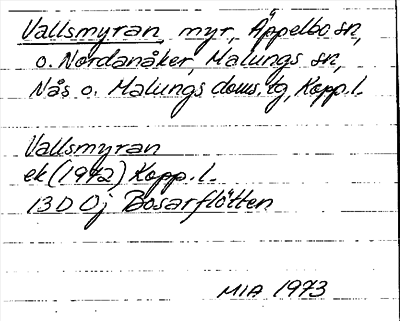 Vallsmyran, myr, Äppelbo sn,
o. Nordanåker, Malungs sn,
Nås o. Malungs doms. tg, Kopp. l.
Vallsmyran
ek (1972) Kopp. l.
13D 0j Bosarflötten
MIA 1973